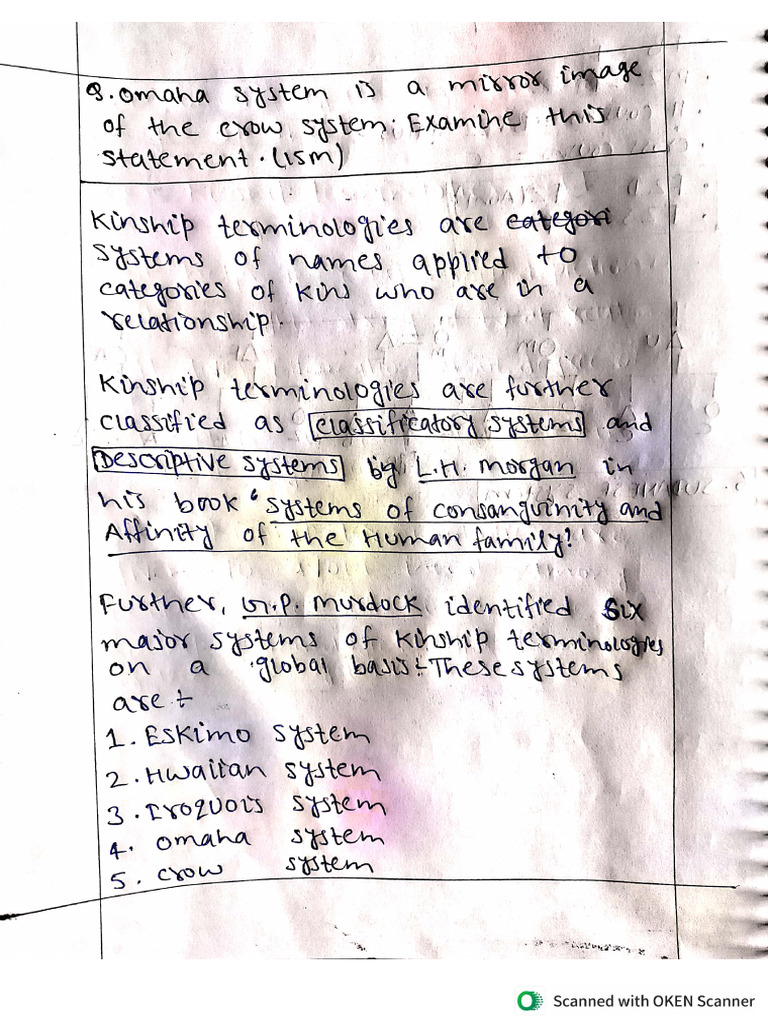 Q. Omaha system is a mirror image
of the crow system. Examine this
statement. (15m)
Kinship terminologies are categori
systems of names applied to
categories of kins who are in a
relationship.
Kinship terminologies are further
classified as classificatory systems and
Descriptive systems by L.H. Morgan in
his book "systems of consanguinity and
Affinity of the Human family!
Further, G.P. Murdock identified six
major systems of kinship terminologies
on a global basis:- These systems
are :-
1. Eskimo system
2. Hwaiian system
3. Iroquois system
4. Omaha system
5. crow system
Scanned with OKEN Scanner